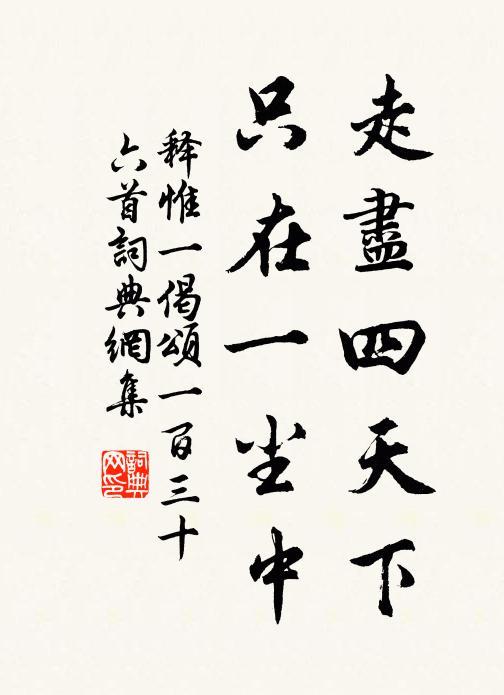 走盡四天下
只在一尘中
释惟一偈頌一百三十
六首詞典網集
詞典网印